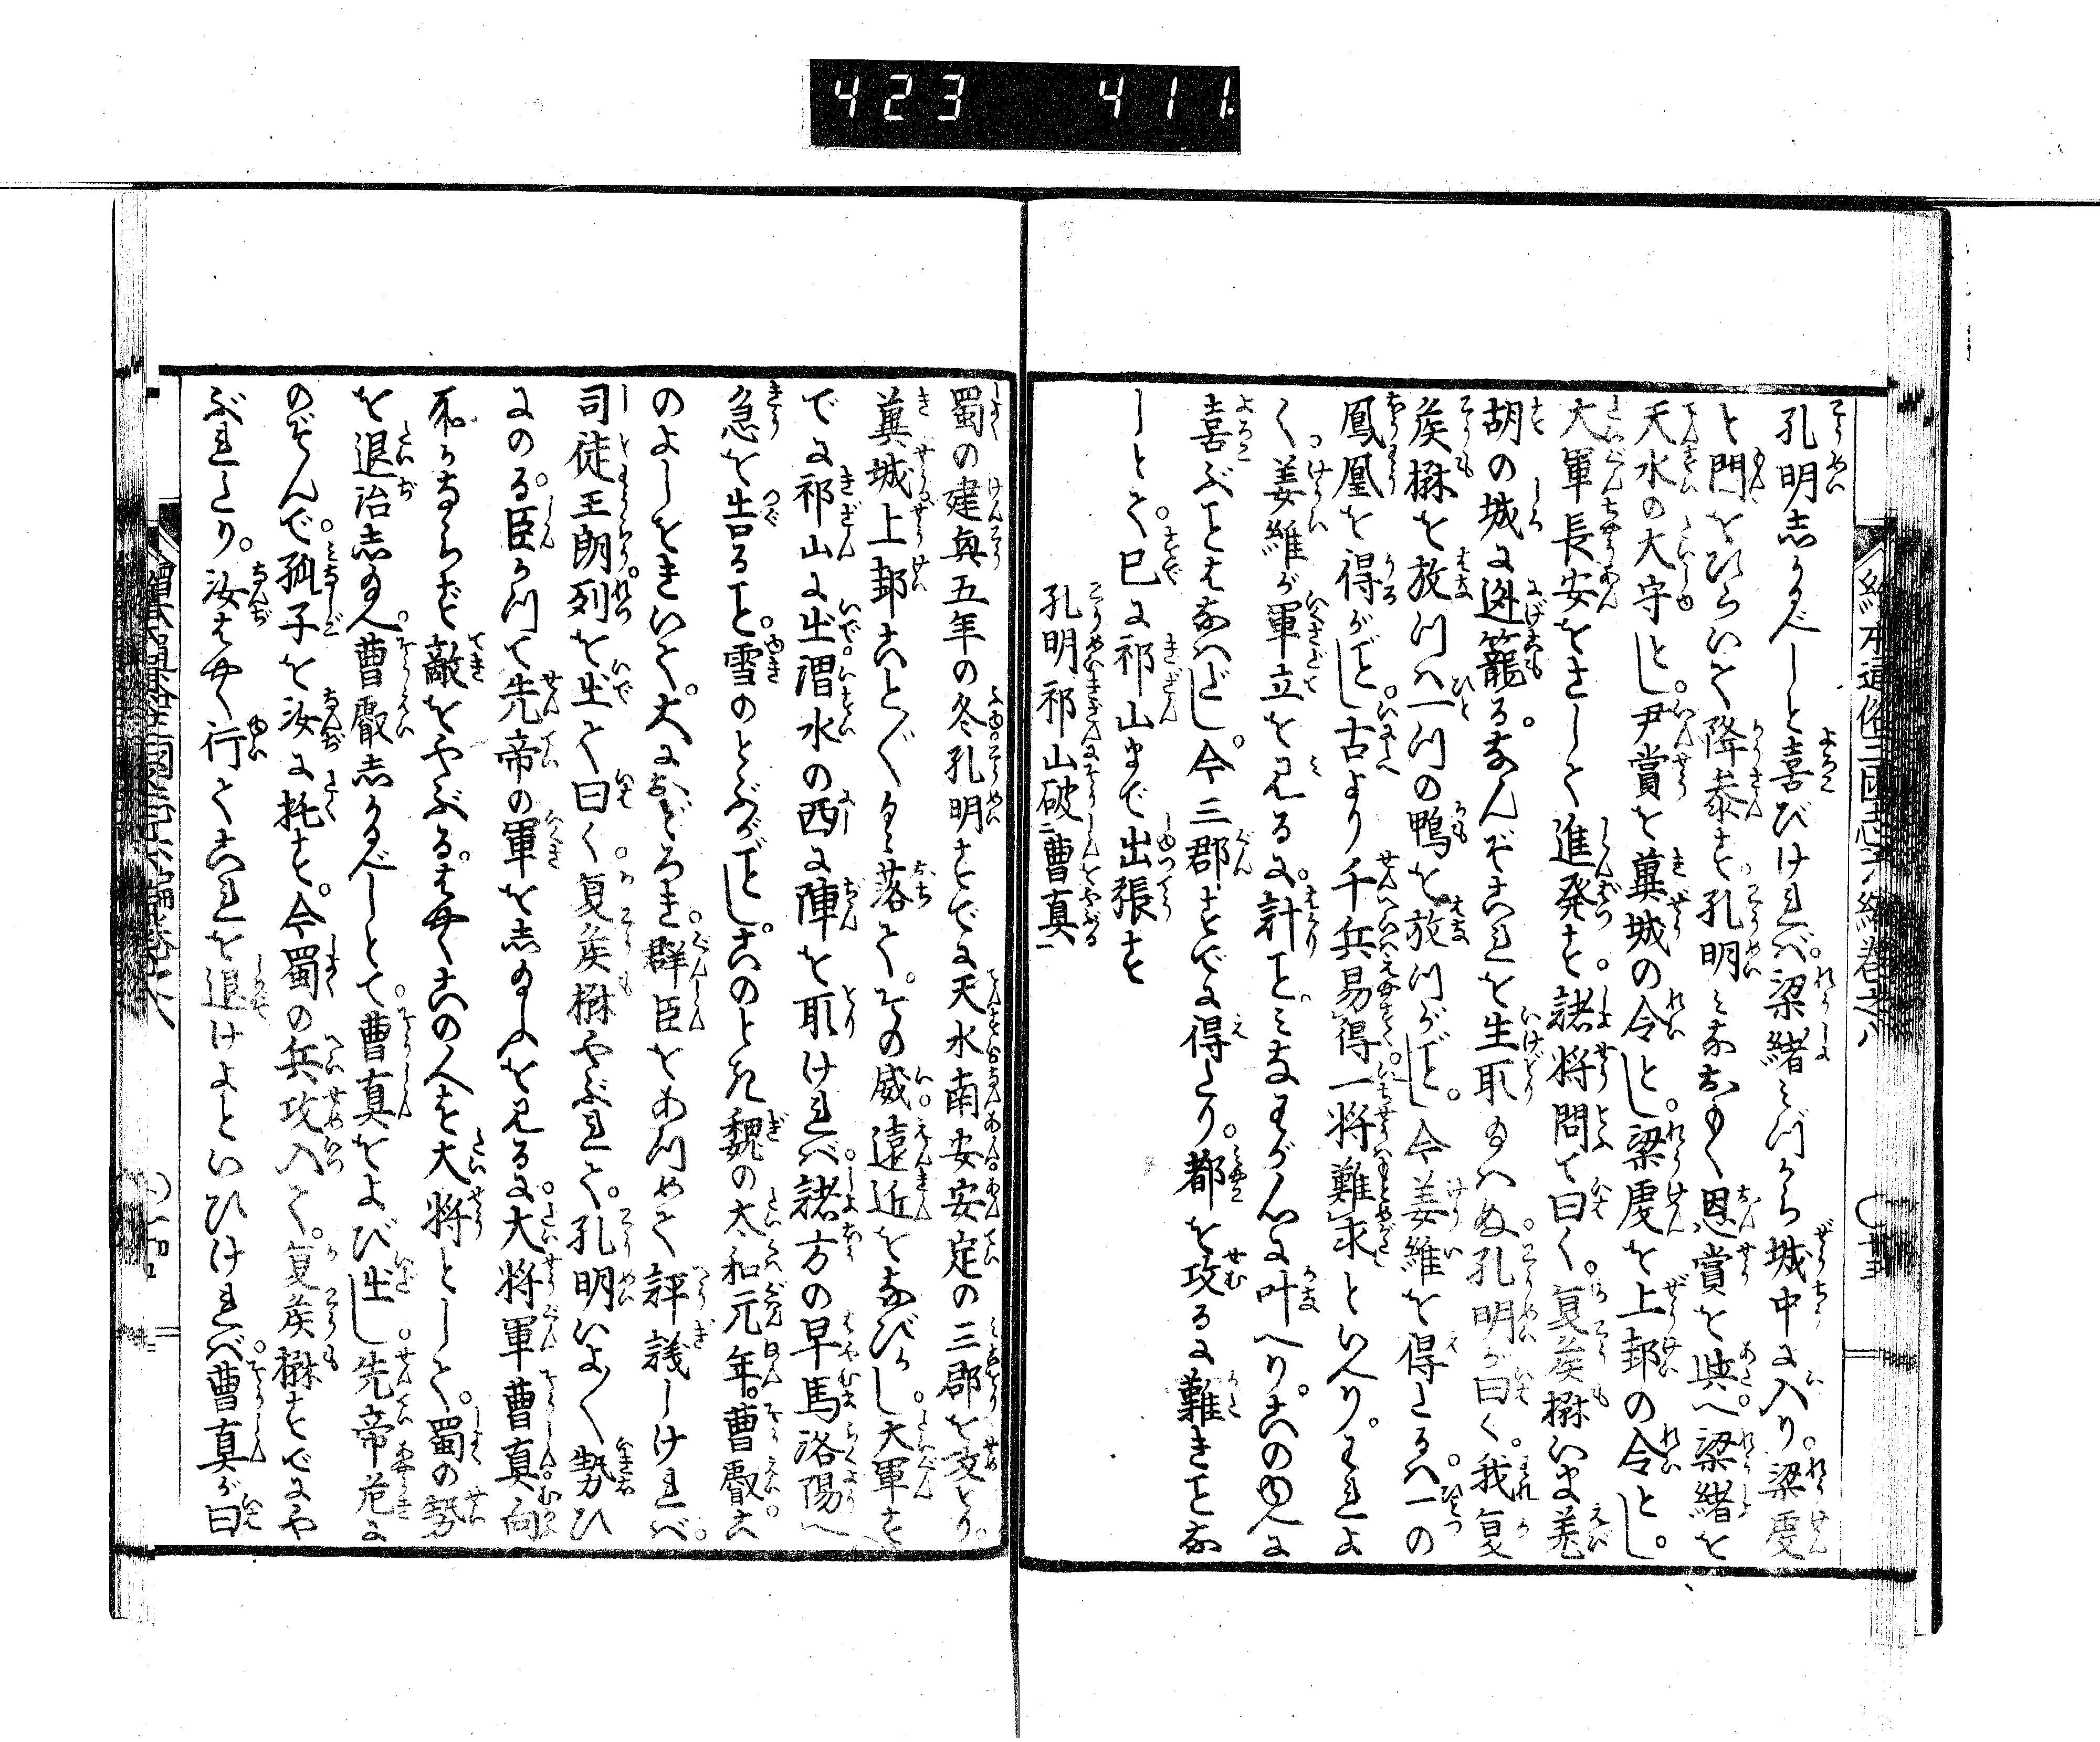 423 411
繪本通俗三國志六編卷之八
孔明志かるべしと喜びけれバ。梁緒ミづから城中に入り。梁虔
と門をひらいて降參す孔明ミなおもく恩賞を與へ梁緒を
天水の大守とし。尹賞を冀城の令とし。梁虔を上邽の令とし。
大軍長安をさして進発す。諸将問て曰く。夏矦楙いま羗
胡の城に迯籠る。なんぞこれを生取給ハぬ。孔明が曰く。我夏
矦楙を放つハ一つの鴨を放つがごとし。今姜維を得たるハ一の
鳳凰を得がごとし。古より千兵易得一将難求といへり。われよ
く姜維が軍立を見るに。計ことミなわが心に叶へり。このゆへに
喜ぶことなハだし。今三郡すでに得たり。都を攻るに難きことな
しとて。已に祁山まで出張す
孔明祁山破二曹真一
蜀の建興五年の冬孔明すでに天水南安安定の三郡を攻とり。
冀城上邽ことごとく落て。その威遠近をなびかし。大軍す
でに祁山に出渭水の西に陣を取けれバ。諸方の早馬洛陽へ
急を告ること。雪のとぶがごとし。このとき魏の太和元年。曹叡こ
のよしをきいて。大におどろき。群臣をあつめて評議しけれバ。
司徒王朗列を出て曰く。夏矦楙やぶれて。孔明いよいよ勢ひ
にのる。臣かつて先帝の軍を志給ふを見るに。大将軍曹真向
所かならず敵をやぶる。はやくこの人を大将として。蜀の勢
を退治志給へ。曹叡志かるべしとて。曹真をよび出し。先帝危に
のぞんで。孤子を汝に托す。今蜀の兵攻入て。夏矦楙すでにや
ぶれたり。汝はやく行てこれを退けよといひけれバ。曹真が曰